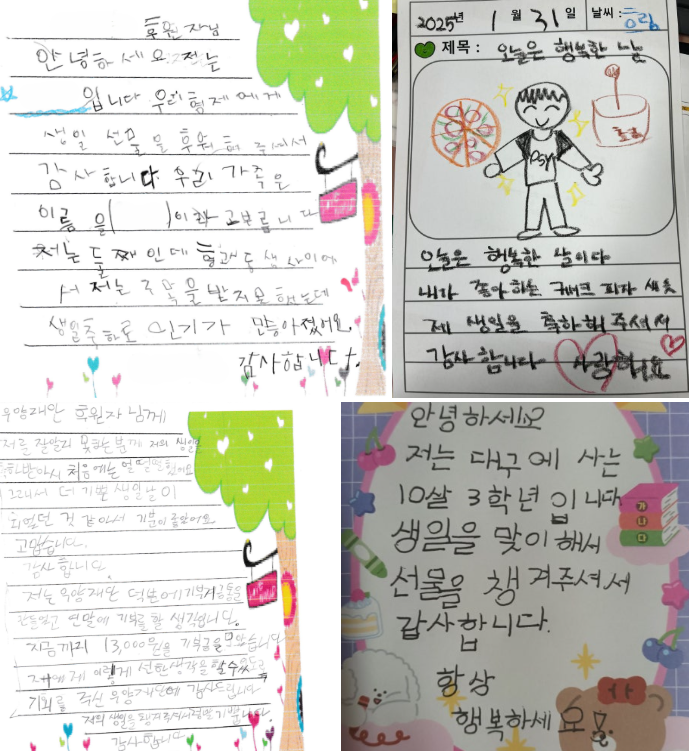 후원자님
안녕하세요 저는
입니다 우리 형제에게
생일 선물을 후원해 주셔서
감사합니다 우리 가족은
이름을( )이라고 부릅니다
저는 둘째인데 형과 동생 사이에
서 저는 주목을 받지 못했는데
생일축하로 인기가 만등아졌어요.
감사합니다.
2025년 1월 31일 날씨: 흐림
제목: 오늘은 행복한 날
오늘은 행복한 날이다
내가 좋아하는 케이크 피자
제 생일을 축하해 주셔서
감사합니다 사랑해요
우양재단 후원자님께
저를 잘알지 못하는분께 저의 생일을
축하받아서 처음에는 얼떨떨했어요
그래서 더 기쁜 생일날이
되었던 것 같아서 기분이 좋았어요
고맙습니다.
감사합니다.
저는 우양재단 덕분에 기부저금통을
만들었고 연말에 기부를 할 생각입니다.
지금까지 13,000원을 기부금을 모았습니다
저에게 이렇게 선한생각을 할수있도록
기회를 주신 우양재단에 감사드립니다
저의 생일을 기쁩니다.
감사합니다
안녕하세요
저는 대구에 사는
10살 3학년 입니다.
생일을 맞이해서
선물을 챙겨주셔서
감사합니다.
가나다
항상
행복하세요